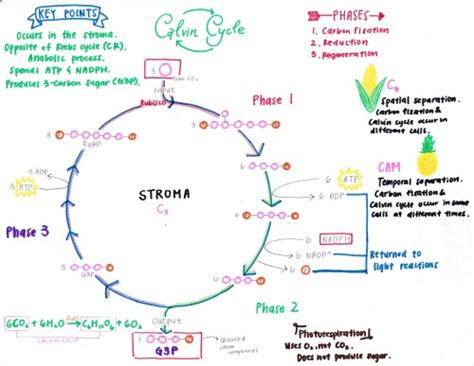 KEY POINTS
Occurs in the stroma.
Opposite of Krebs cycle (CR).
Anabolic process.
Spends ATP & NADPH.
Produces 3-Carbon Sugar (G3P)
Calvin Cycle
PHASES
1. Carbon Fixation
2. Reduction
3. Regeneration
3
Input
Rubisco
Phase 1
3
6
RuBP
3 ADP
3 ATP
STROMA
C3
Phase 3
6 ATP
6 ADP
6
6 NADPH
6 NADP+
6
Returned to
light reactions
6
5
G3P
Phase 2
Output
1
G3P
glucose &
other
compounds
C4
Spatial separation.
Carbon fixation &
Calvin cycle occur in
different cells.
CAM
Temporal separation.
Carbon fixation &
Calvin cycle occur in same
cells at different times.
6CO2 + 6H2O → C6H12O6 + 6O2
CALVIN CYCLE
Photorespiration!
Uses O2, not CO2.
Does not produce sugar.